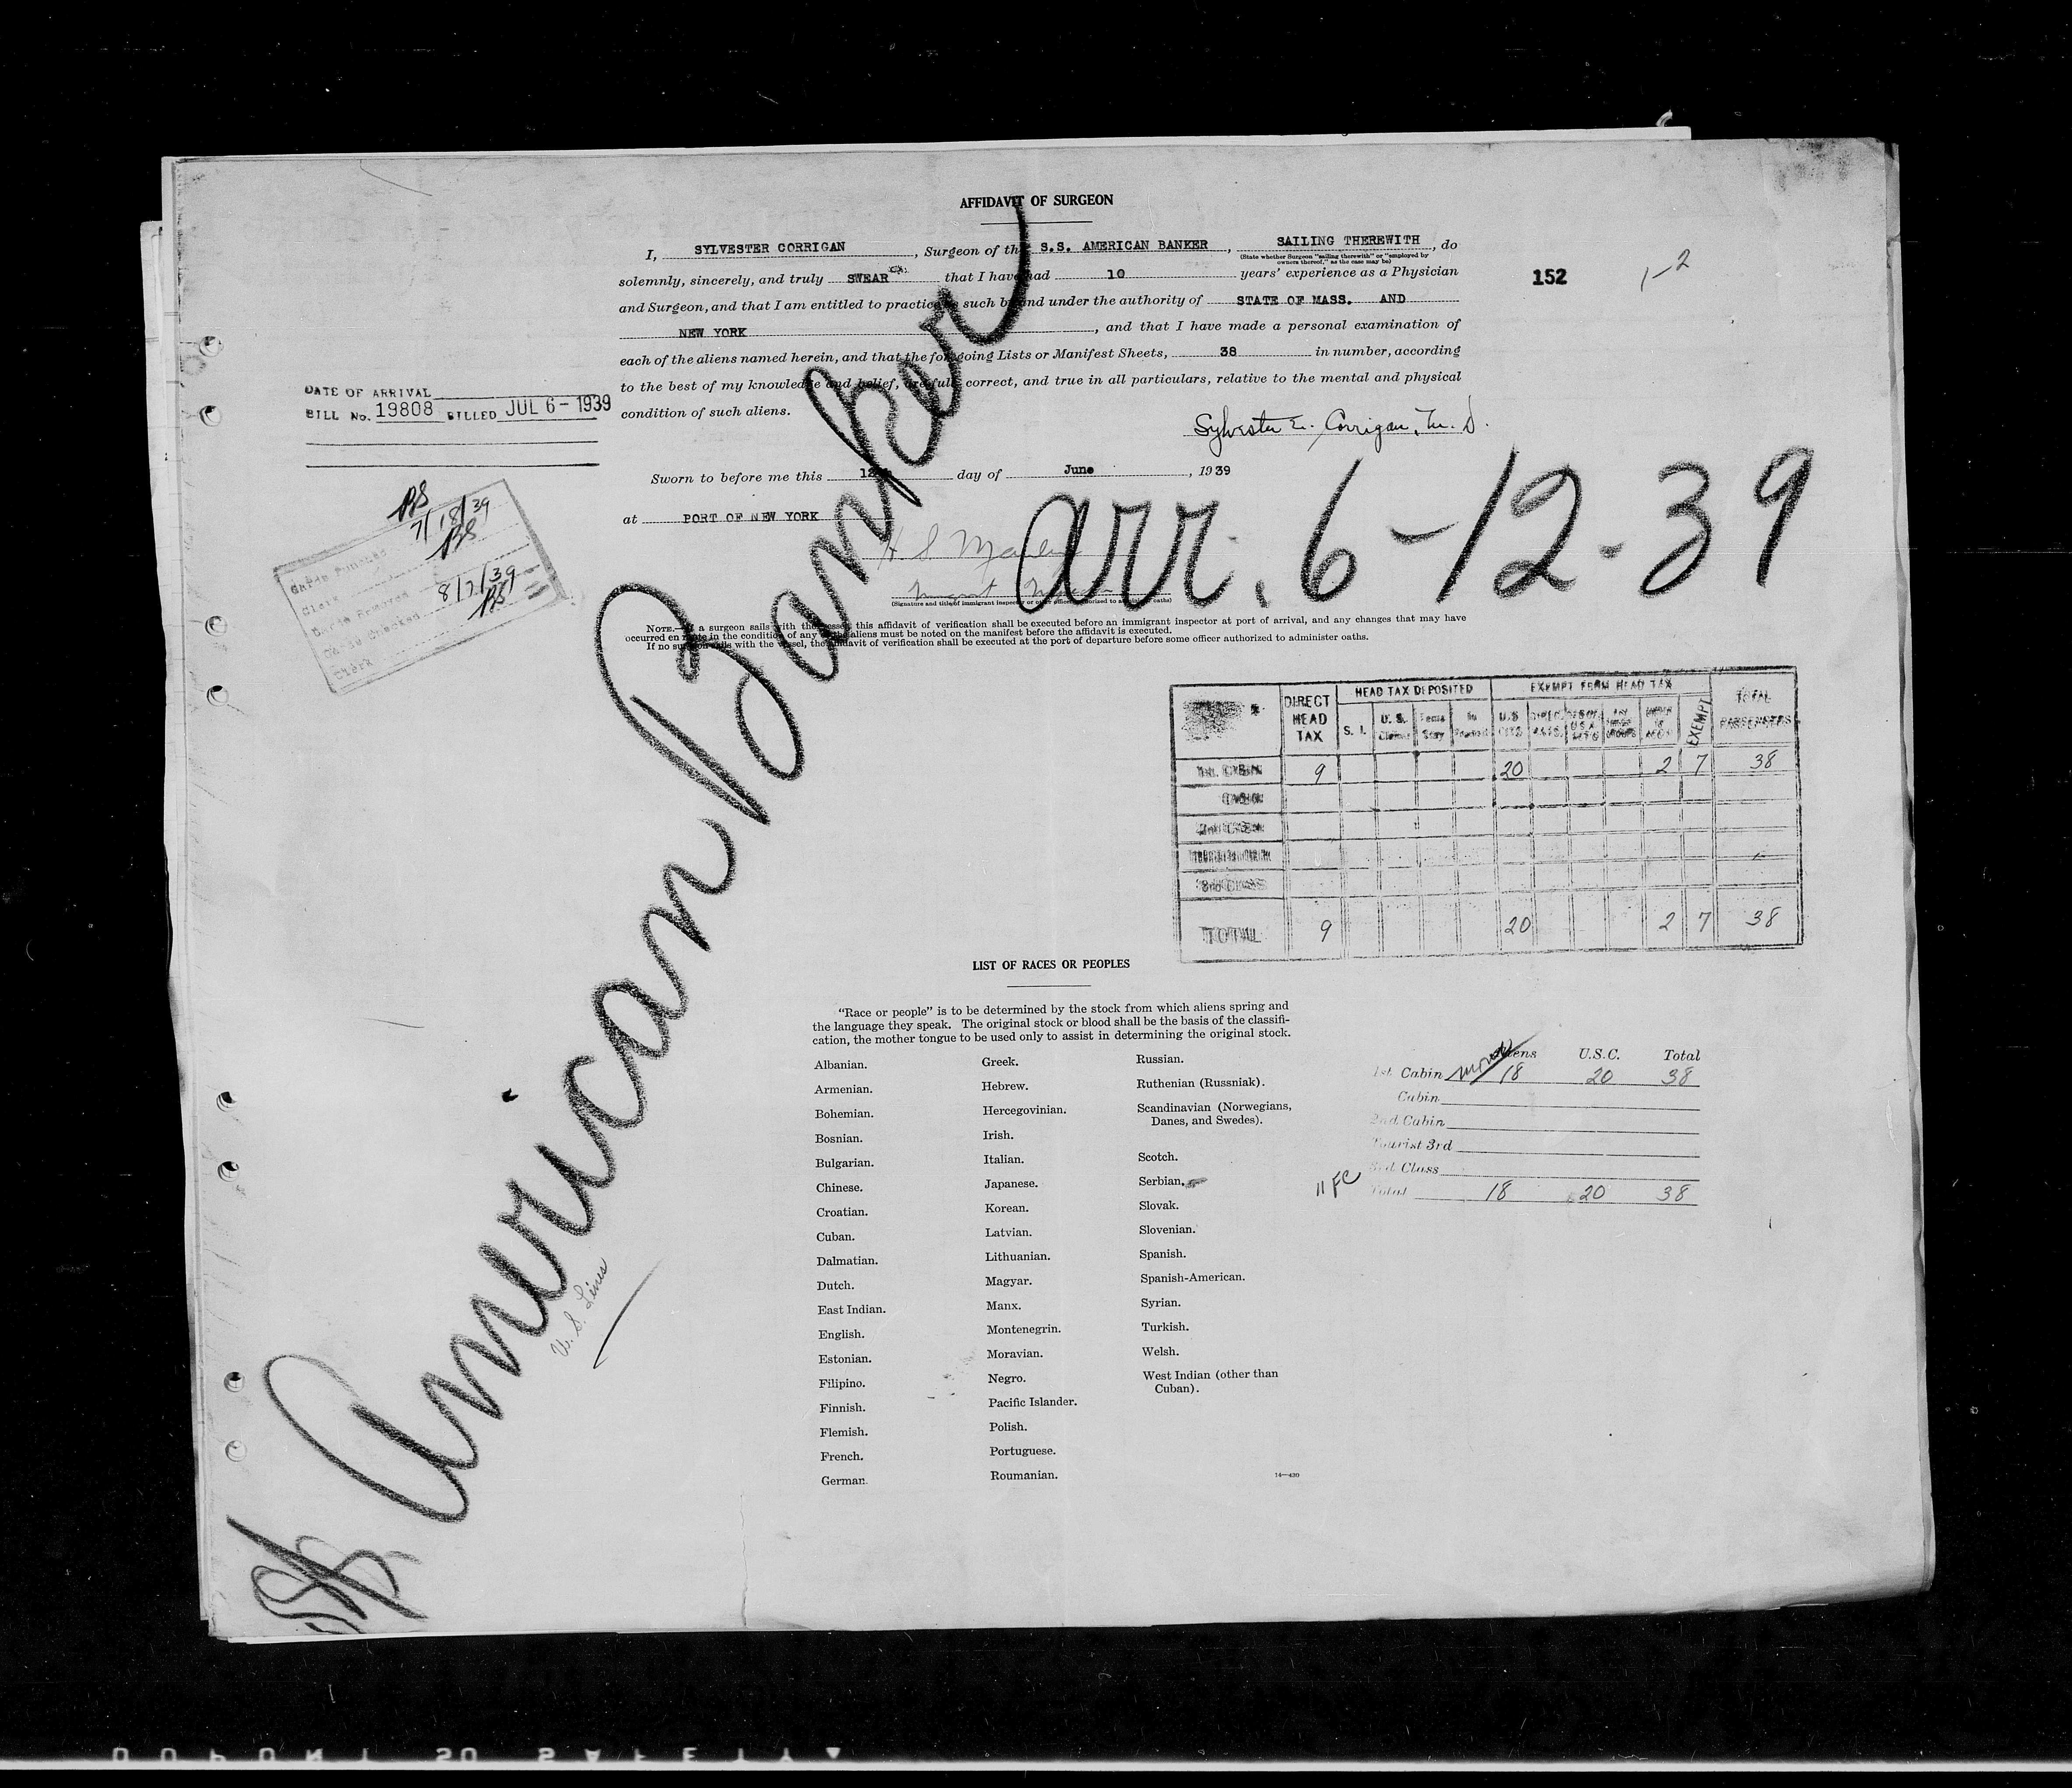 AFFIDAVIT OF SURGEON
I, SYLVESTER CORRIGAN, Surgeon of the S.S. AMERICAN BANKER, SAILING THEREWITH, do
(State whether Surgeon "sailing therewith" or "employed by
owners thereof," as the case may be)
solemnly, sincerely, and truly SWEAR that I have had 10 years' experience as a Physician
152
1-2
and Surgeon, and that I am entitled to practice as such by and under the authority of STATE OF MASS. AND
NEW YORK, and that I have made a personal examination of
each of the aliens named herein, and that the foregoing Lists or Manifest Sheets, 38 in number, according
to the best of my knowledge and belief, are full, correct, and true in all particulars, relative to the mental and physical
condition of such aliens.
DATE OF ARRIVAL
BILL No. 19808 BILLED JUL 6 - 1939
Sylvester E. Corrigan, M. D.
Sworn to before me this 12 day of June, 1939
at PORT OF NEW YORK
arr. 6-12-39
American Banker
U. S. Lines
7/18/39
Clerk
8/7/39
Clerk
(Signature and title of immigrant inspector or other officer authorized to administer oaths)
NOTE.—If a surgeon sails with the vessel, this affidavit of verification shall be executed before an immigrant inspector at port of arrival, and any changes that may have
occurred en route in the condition of any of the aliens must be noted on the manifest before the affidavit is executed.
If no surgeon sails with the vessel, the affidavit of verification shall be executed at the port of departure before some officer authorized to administer oaths.
DIRECT HEAD TAX HEAD TAX DEPOSITED EXEMPT FROM HEAD TAX TOTAL PASSENGERS
S. I. U. S. EXEMPT
1st. CABIN 9 20 2 7 38
CABIN
TOTAL 9 20 2 7 38
LIST OF RACES OR PEOPLES
"Race or people" is to be determined by the stock from which aliens spring and
the language they speak. The original stock or blood shall be the basis of the classifi-
cation, the mother tongue to be used only to assist in determining the original stock.
Albanian.
Armenian.
Bohemian.
Bosnian.
Bulgarian.
Chinese.
Croatian.
Cuban.
Dalmatian.
Dutch.
East Indian.
English.
Estonian.
Filipino.
Finnish.
Flemish.
French.
German.
Greek.
Hebrew.
Hercegovinian.
Irish.
Italian.
Japanese.
Korean.
Latvian.
Lithuanian.
Magyar.
Manx.
Montenegrin.
Moravian.
Negro.
Pacific Islander.
Polish.
Portuguese.
Roumanian.
Russian.
Ruthenian (Russniak).
Scandinavian (Norwegians,
Danes, and Swedes).
Scotch.
Serbian.
Slovak.
Slovenian.
Spanish.
Spanish-American.
Syrian.
Turkish.
Welsh.
West Indian (other than
Cuban).
14—430
U.S.C. Total
1st. Cabin 18 20 38
Cabin
2nd Cabin
Tourist 3rd
3rd. Class
Total 18 20 38